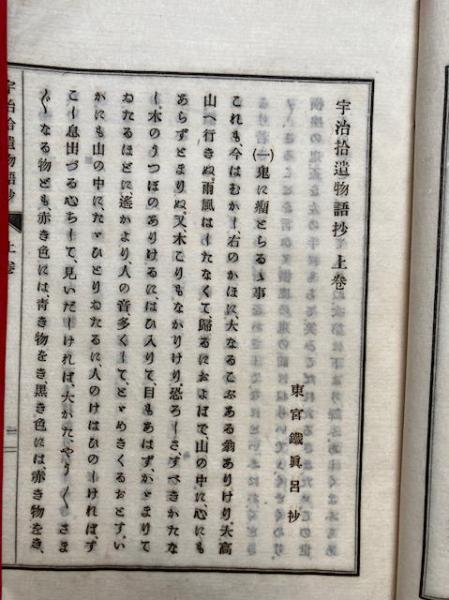 宇治拾遺物語抄上巻
東宮鐵眞呂抄
(一)鬼に瘤とらるゝ事
これも、今はむかし、右のかほに、大なるこぶある翁ありけり、大高
山へ行きぬ、雨風はしたなくて、歸るにおよばで、山の中に、心にも
あらずとまりぬ、又木こりもなかりけり、恐ろしさ、すべきかたな
し、木のうつぼのありけるに、はひ入りて、目もあはず、かゞまりて
ゐたるほどに、遙かより、人の音、多くして、とゞめきくるおとす、い
かにも山の中に、たゞひとりゐたるに、人のけはひのしければ、す
こし息出づる心ちして、見いだしければ、大かた、やう〳〵さま
〴〵なる物ども、赤き色には、青き物をき、黒き色には、赤き物をき、
宇治拾遺物語抄 上巻